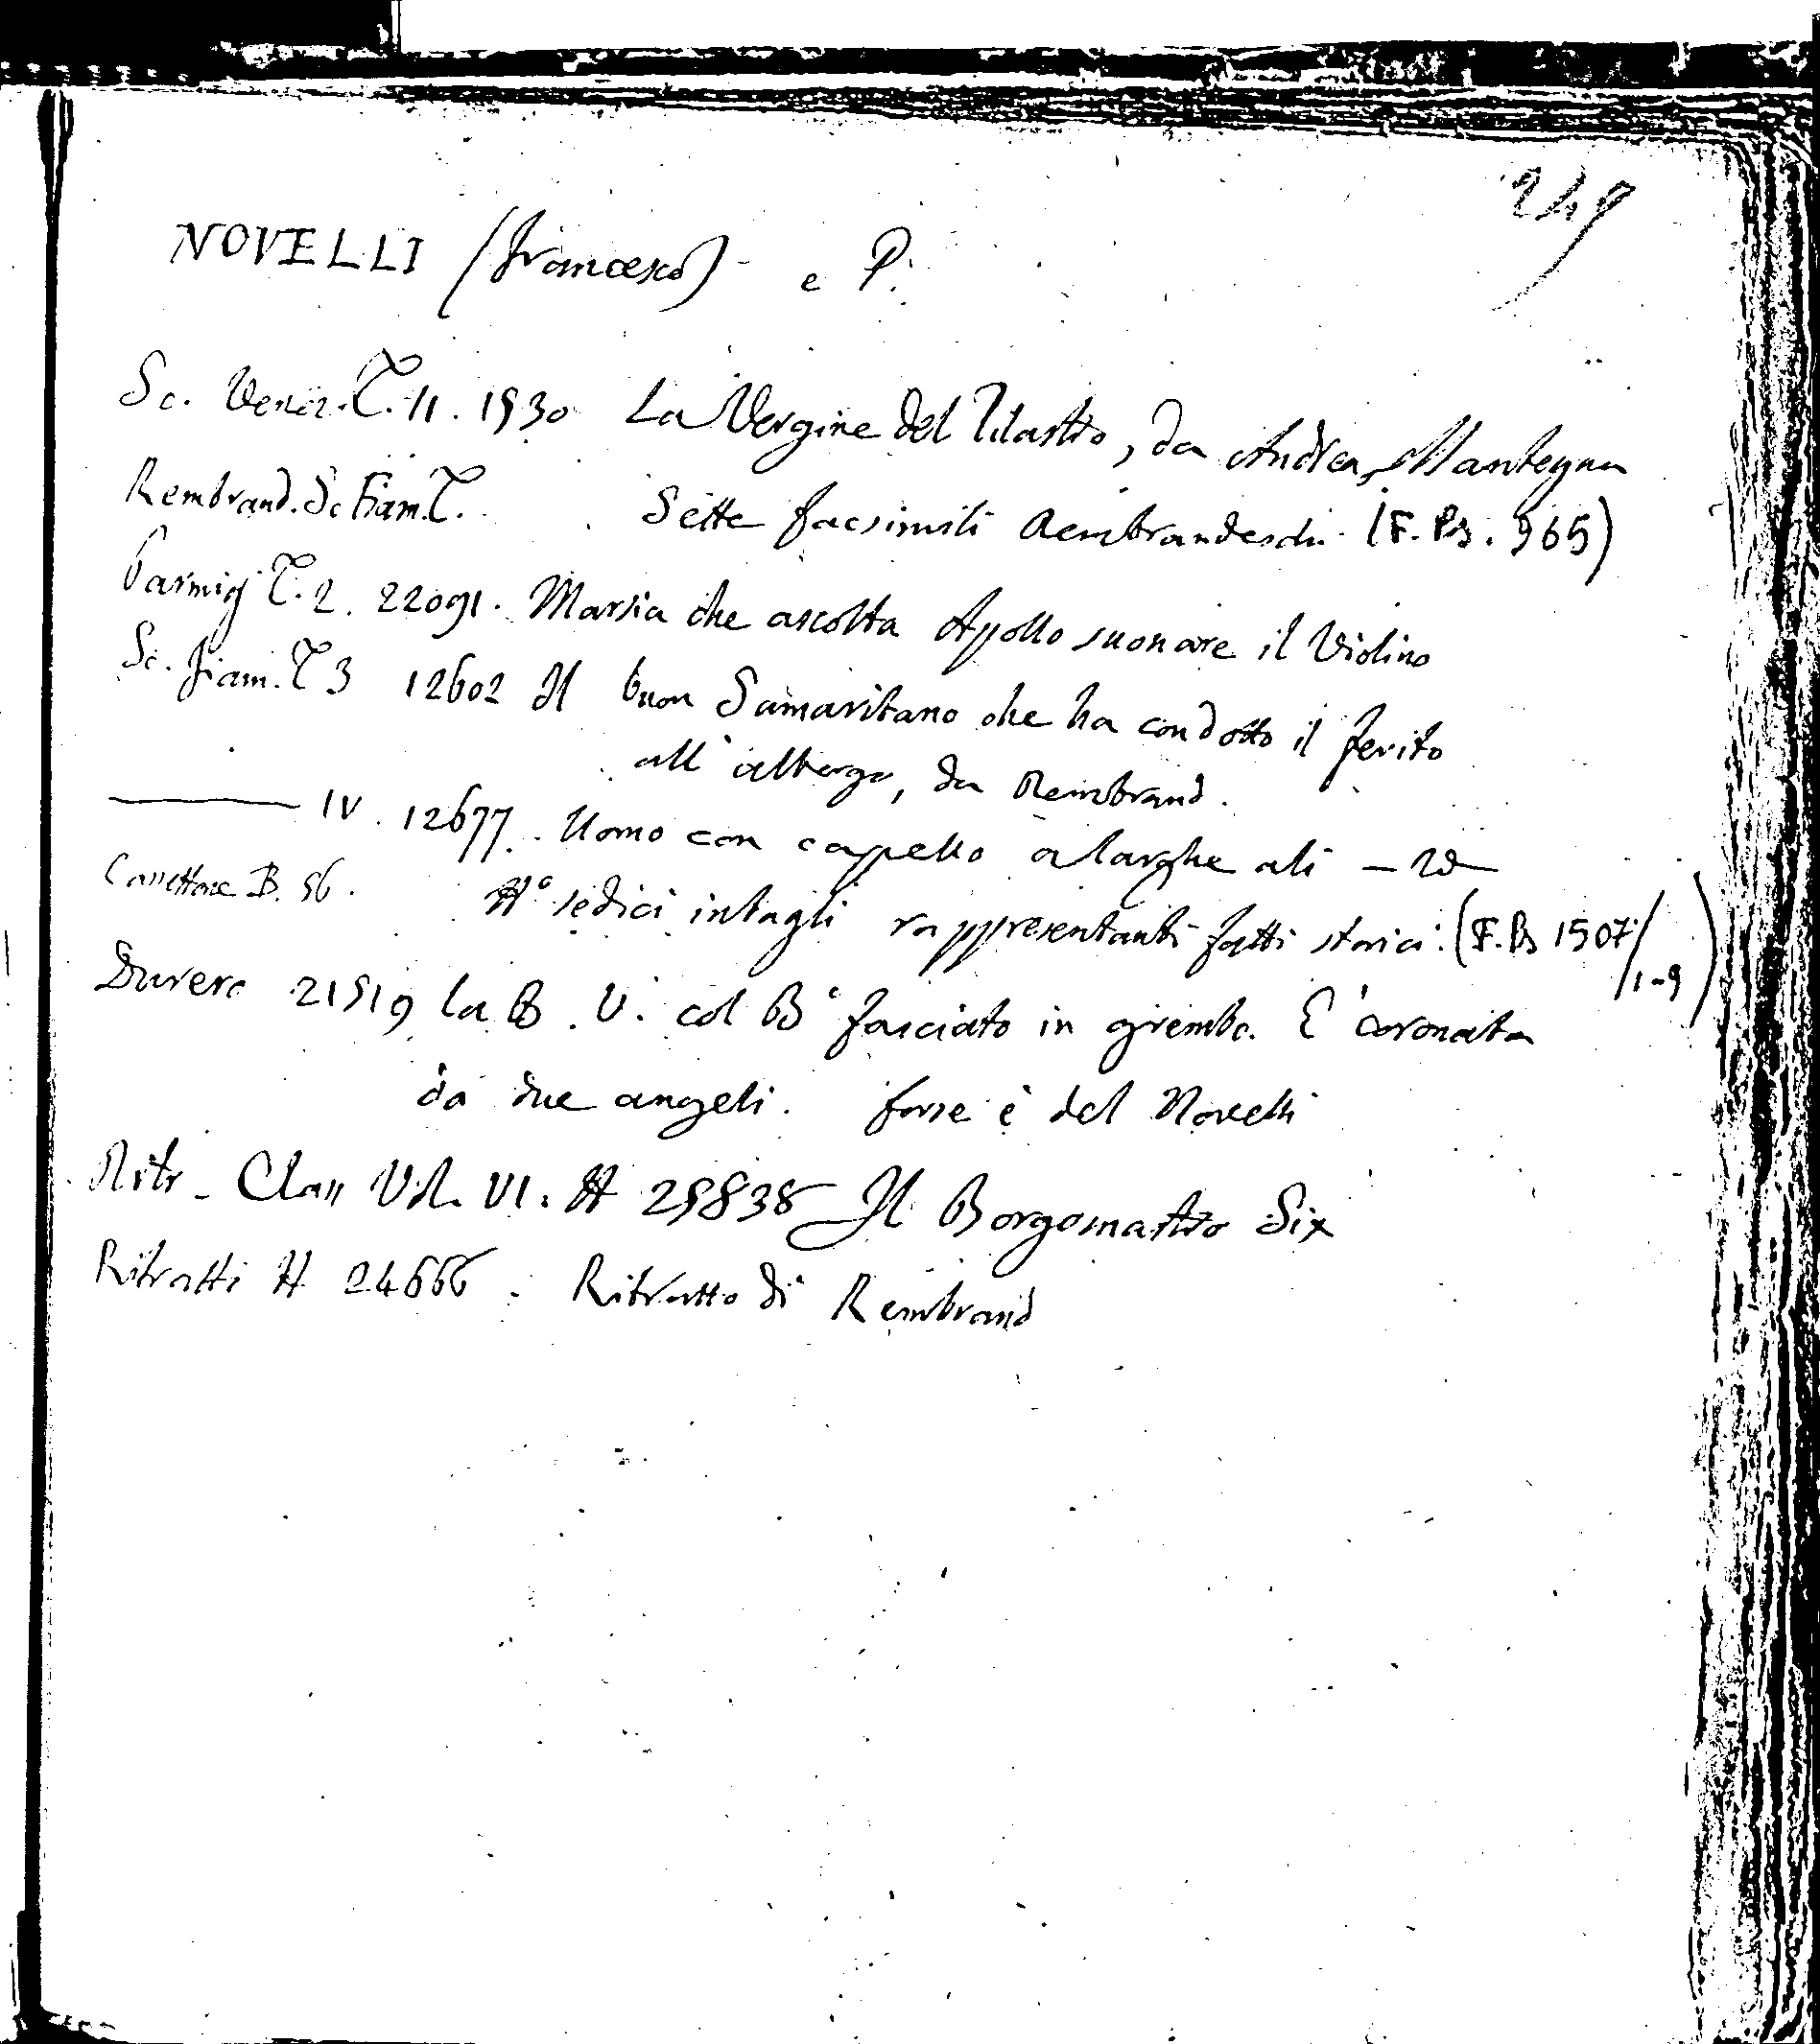 249
NOVELLI (Francesco) - e P.
Sc. Venez. T. 11. 1930 La Vergine del Pilastro, da Andrea Mantegna
Rembrand. Sc Fiam. T. Sette facsimili Rembrandeschi. (F. Ps. 965)
Parmig T. 2. 22091. Marsia che ascolta Apollo suonare il Violino
Sc. Fiam. T 3 12602 Il buon Samaritano che ha condotto il ferito
all'albergo, da Rembrand.
——— IV. 12677. Uomo con cappello a larghe ali — Id
Cassettone B. 56. N° sedici intagli rappresentanti fatti storici. (F. Ps 1507/
/1-9)
Durero 21519 la B. V. col B° fasciato in grembo. E' coronata
da due angeli. forse è del Novelli
Ritr - Class Vol. VI. N 25838 Il Borgomastro Six
Ritratti N 24666. Ritratto di Rembrand